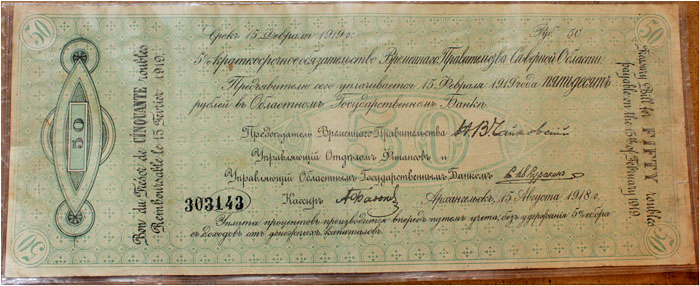 50
50
Срокъ 15 Февраля 1919 г.
Руб. 50
5% краткосрочное обязательство Временнаго Правительства Сѣверной Области
Предъявителю сего уплачивается 15 Февраля 1919 года пятьдесятъ
рублей въ Областномъ Государственномъ Банкѣ
Предсѣдатель Временнаго Правительства Н.В. Чайковскій
Управляющій Отдѣломъ Финансовъ и
Управляющій Областнымъ Государственнымъ Банкомъ
303143
Кассиръ
Архангельскъ, 15 Августа 1918 г.
Уплата процентовъ производится впередъ путемъ учета, безъ удержанія 5% сбора
съ доходовъ отъ денежныхъ капиталовъ.
50
50
50
Bon du Trésor de CINQUANTE roubles
Remboursable le 15 Février 1919.
Treasury Bill for FIFTY roubles
payable on the 15th of February 1919.
50
50